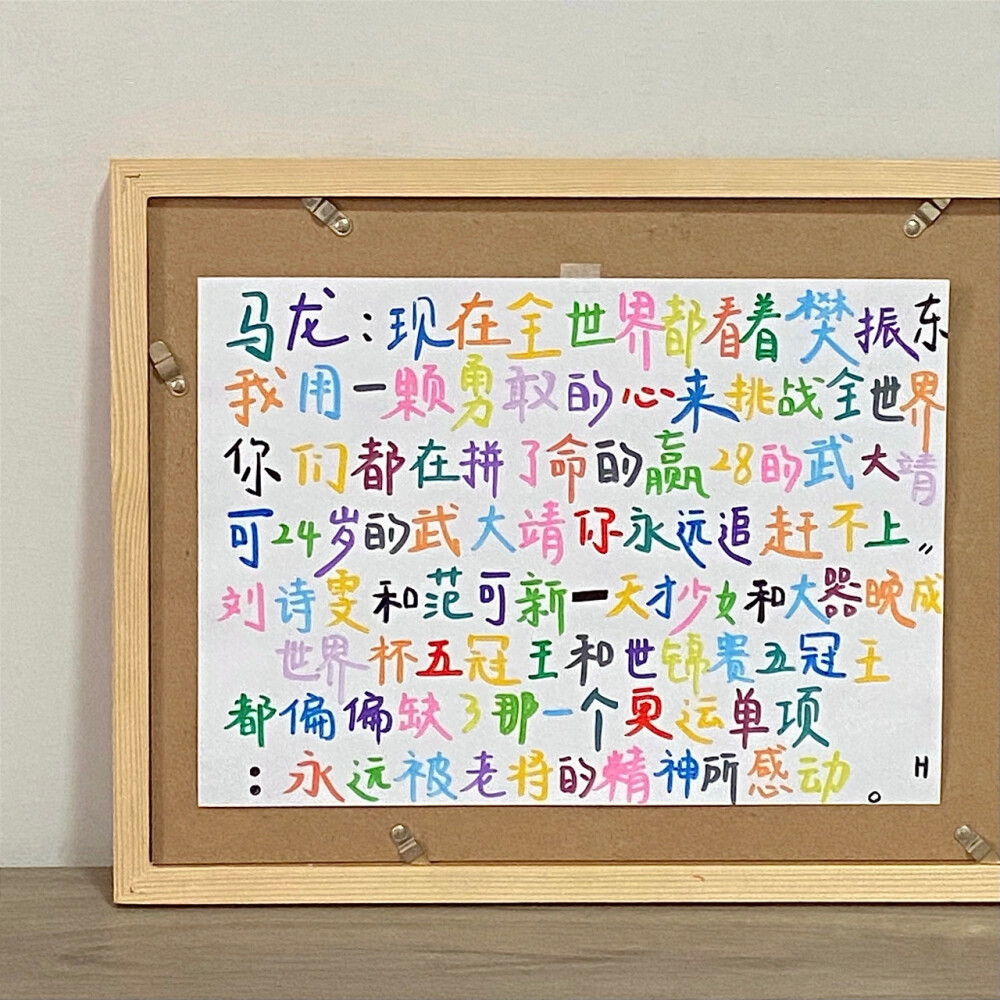 马龙:现在全世界都看着樊振东
我用一颗勇敢的心来挑战全世界
你们都在拼了命的赢28的武大靖
可24岁的武大靖你永远追赶不上〃
刘诗雯和范可新一天才少女和大器晚成
世界杯五冠王和世锦赛五冠王
都偏偏缺了那一个奥运单项
:永远被老将的精神所感动。 H